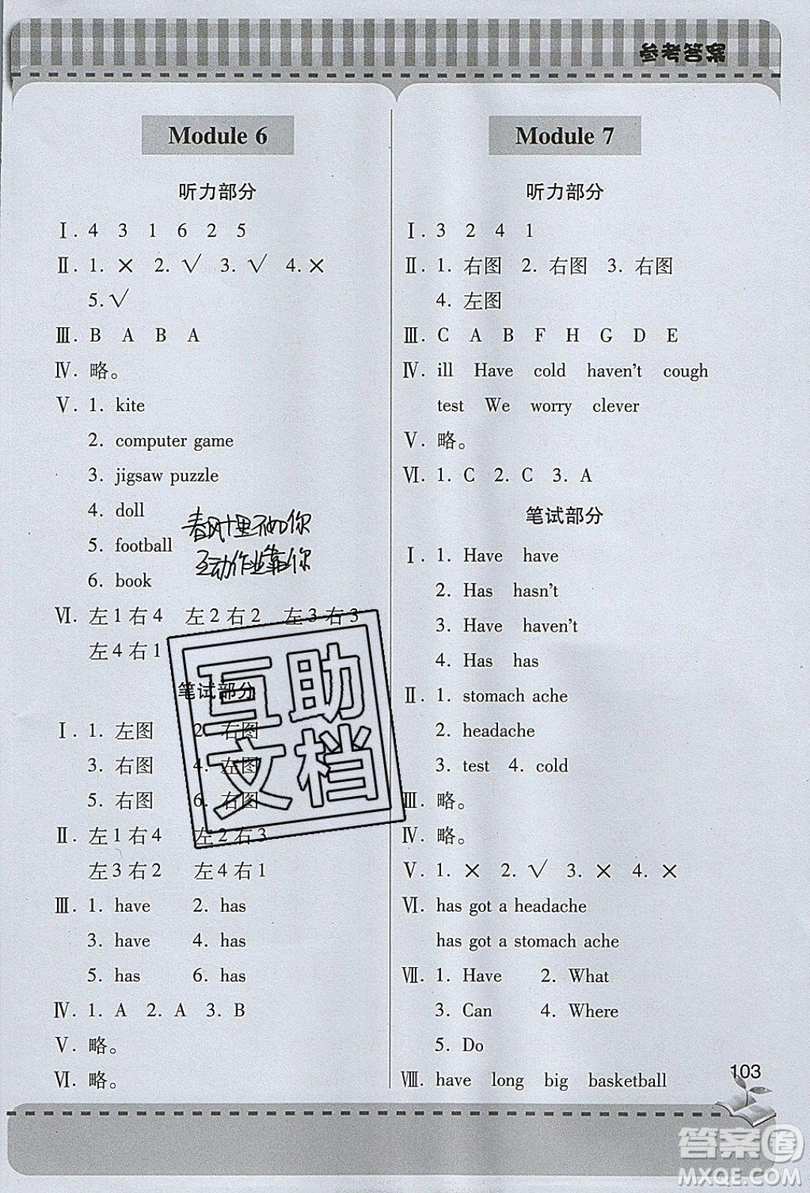 参考答案
Module 6
听力部分
Ⅰ. 4 3 1 6 2 5
Ⅱ. 1. × 2. √ 3. √ 4. ×
5. √
Ⅲ. B A B A
Ⅳ. 略。
Ⅴ. 1. kite
2. computer game
3. jigsaw puzzle
4. doll
5. football
6. book
春风十里不如你
互动作业靠你
Ⅵ. 左1右4 左2右2 左3右3
左4右1
笔试部分
Ⅰ. 1. 左图 2. 右图
3. 右图 4. 左图
5. 右图 6. 右图
互助
文档
Ⅱ. 左1右4 左2右3
左3右2 左4右1
Ⅲ. 1. have 2. has
3. have 4. has
5. has 6. has
Ⅳ. 1. A 2. A 3. B
Ⅴ. 略。
Ⅵ. 略。
Module 7
听力部分
Ⅰ. 3 2 4 1
Ⅱ. 1. 右图 2. 右图 3. 右图
4. 左图
Ⅲ. C A B F H G D E
Ⅳ. ill Have cold haven't cough
test We worry clever
Ⅴ. 略。
Ⅵ. 1. C 2. C 3. A
笔试部分
Ⅰ. 1. Have have
2. Has hasn't
3. Have haven't
4. Has has
Ⅱ. 1. stomach ache
2. headache
3. test 4. cold
Ⅲ. 略。
Ⅳ. 略。
Ⅴ. 1. × 2. √ 3. × 4. ×
Ⅵ. has got a headache
has got a stomach ache
Ⅶ. 1. Have 2. What
3. Can 4. Where
5. Do
Ⅷ. have long big basketball
103
答案圈
MXQE.COM